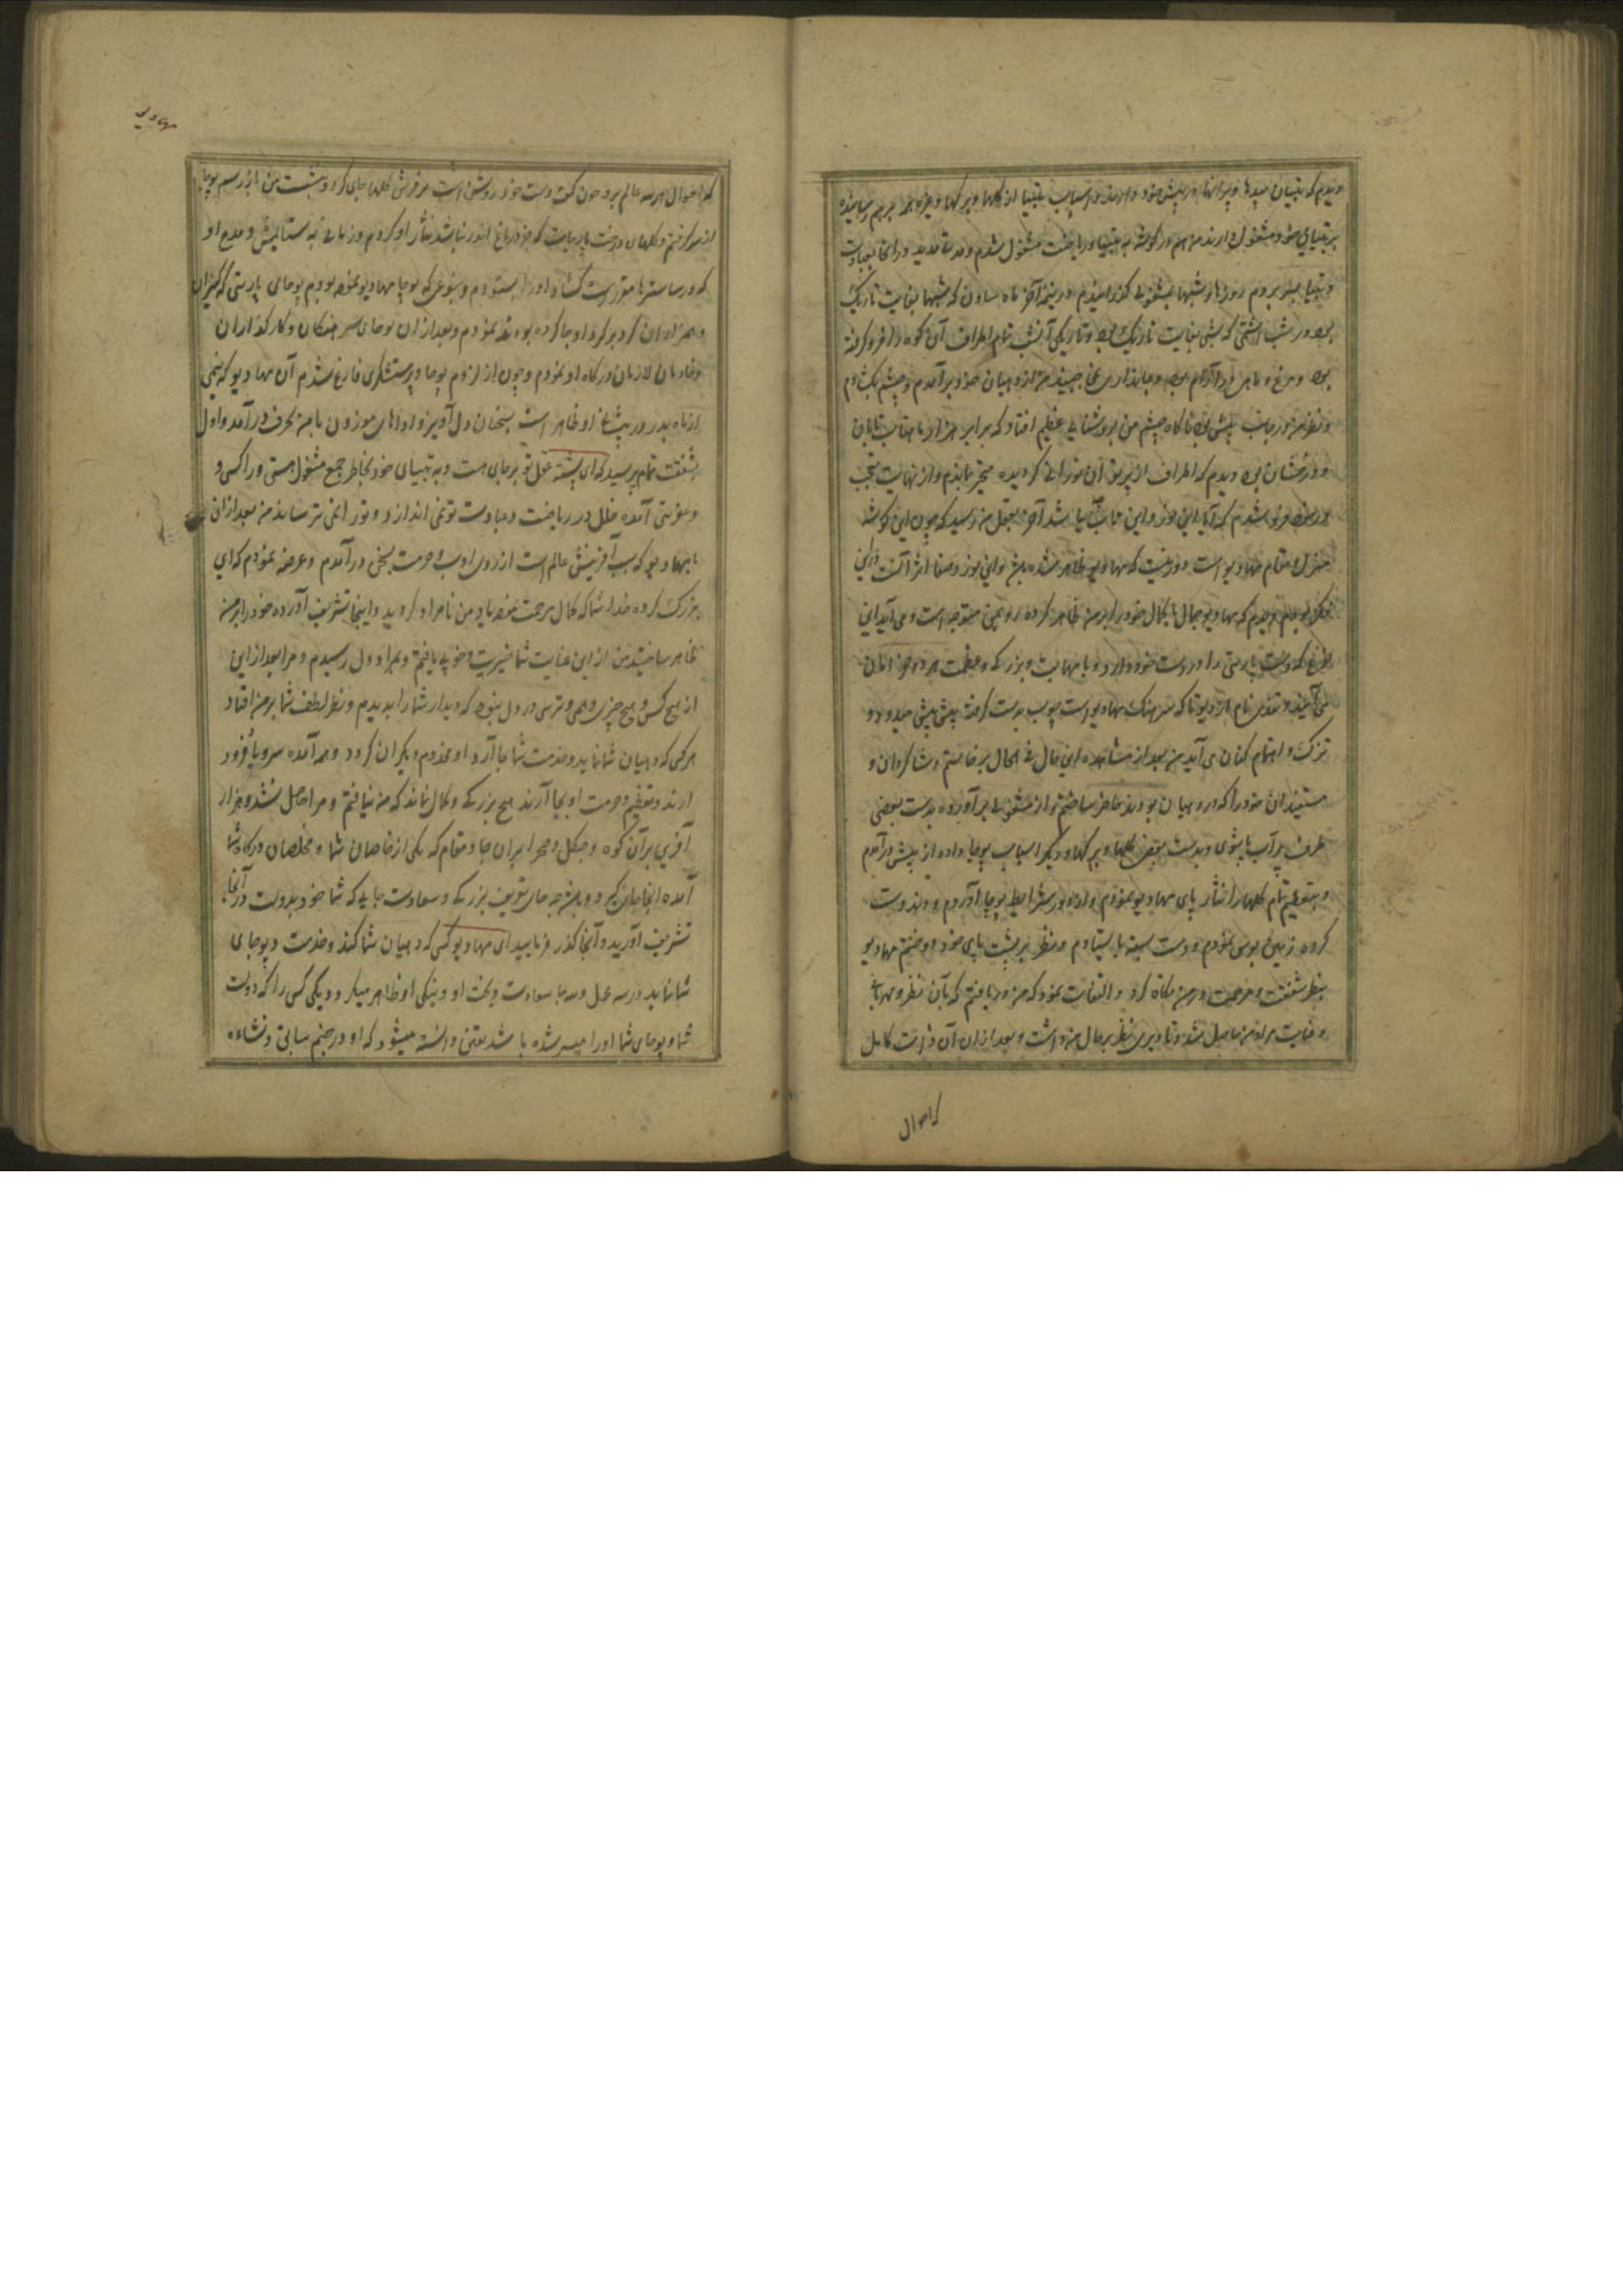 دیدم که تپسیان میدها و پیرانها در پیش خود دارند و اسباب تپسیا از گلها و برگها و غیره همه بر هم رسانیده
بر تپسیای خود مشغولی دارند من هم در گوشه به تپسیا و ریاضت مشغول شدم و مدت مدید در آنجا بعبادت
و تپسیا بسر بردم روزها و شبها بمشغولی گذرانیدم در نیمه آخر ماه ساون که شبها بغایت تاریک
بود در شب اشتمی که شبی بغایت تاریک بود و تاریکی آنشب تمام اطراف آن کوه را فرو گرفته
بود و مرغ و ماهی در آرام بود و جانداری نمی جنبید من از دهیان خود برآمدم و چشم بکشادم
و نظر من در جانب پیش بود ناگاه چشم من بر روشنایی عظیم افتاد که برابر هزار ماهتاب تابان
و درخشان بود دیدم که اطراف از پرتو آن نورانی گردیده متحیر بماندم و از نهایت تعجب
فرو شدم که آیا این نور و این تاب چه باشد آخر بعقل من رسید که چون این گوشه
منزل و مقام مهادیو است و وقتیست که مهادیو ظاهر شده باشد و این نور و صفا اثر آنست در این
فکر بودم دیدم که مهادیو جمال با کمال خود برابر من ظاهر کرده روبمن متوجه است و می آید این
طرح که دست پاربتی را در دست خود دارد و با مهابت و بزرگی و عظمت هر دو خرامان
می آیند و نندی نام از دیوتا که سرهنگ مهادیو است چوب بدست گرفته پیش پیش میدود و
تزک و اهتمام کنان می آید من بعد از مشاهده این حال فی الحال برخاستم و شاگردان و
مستفیدان خود را که در دهیان بودند حاضر ساختم و از مشغولی برآورده بدست بعضی
ظرف پر آب پاشوی و بدست بعضی گلها و برگها و دیگر اسباب پوجا داده از پیش درآمدم
و بتعظیم تمام گلها را نثار پای مهادیو نمودم و ادب و شرایط پوجا آوردم و دندوت
کرده زمین بوس نمودم و دست بسته بایستادم و نظر بر پشت پای خود دوختم مهادیو
بنظر شفقت و مرحمت در من نگاه کرد و التفات نمود که من دریافتم که بآن نظر و مهربانی
و عنایت مراد من حاصل شد و تا دیری نظر بر حال من داشت و بعد از ان آن ذات کامل
که احوال
که احوال هر سه عالم بر و چون کف دست خود روشن است بر فرش گلها جای کرد و بنشست من باز رسم پوجا
از سر گرفتم و گلهای درخت پارجات که جز در باغ اندر نباشد نثار او کردم و زبان به ستایش و مدح او
که در ساسترها مقرر است گشاده او را بستودم و بنوعی که پوجا مهادیو نموده بودم پوجای پاربتی که کنیزان
و همزادان گرد بر گرد او جا کرده بودند نمودم و بعد از ان پوجای سرهنگان و کارگذاران
و خادمان لازمان درگاه او نمودم و چون از لزوم پوجا و پرستشگری فارغ شدم آن مهادیو که نیمی
از ماه بدر در پیشانی او ظاهر است بسخنان دل آویز و اداهای موزون با من بحرف درآمد و اول
بشفقت تمام پرسید که ای بشسته عقل تو بر جای هست و به تپسیای خود بخاطر جمع مشغول هستی و را کسی و
عفریتی آمده خلل در ریاضت و عبادت تو نمی اندازد و تو را نمی ترساند من بعد از ان
با مهادیو که سبب آفرینش عالم است از روی ادب و حرمت بسخن درآمدم و عرضه نمودم که ای
بزرگ کرده خدا شما که کمال مرحمت نموده یاد من نامراد کردید و اینجا تشریف آورده خود را بر من
ظاهر ساختید من از این عنایت شما خیریت و خوبی یافتم و بمراد دل رسیدم و مرا بعد از این
از هیچ کس و هیچ چیزی وهمی و ترسی در دل نبود که دیدار شما را بدیدم و نظر لطف شما بر من افتاد
هر کس که دهیان شما نماید و خدمت شما بجا آرد او مخدوم دیگران گردد و همه آمده سر و پا فرود
ارند و تعظیم و حرمت او بجا آرند هیچ بزرگی و کمال نماند که من نیافتم و مرا حاصل نشد و هزار
آفرین بر آن کوه و جنگل و صحرا بران جا و مقام که یکی از خاصان شما و مخلصان درگاه شما
آمده آنجا جای گیرد و بهر چه جای تعریف بزرگی و سعادت جاییکه شما خود بدولت در آنجا
تشریف آورید و آنجا گذر فرمایید ای مهادیو کسی که دهیان شما کند و خدمت و پوجای
شما نماید در سه محل و سه جا سعادت و بخت او و نیکی او ظاهر میگردد یکی کسی را که دولت
شما و پوجای شما او را میسر شده باشد یعنی دانسته میشود که او در جنم سابق و نشاءه